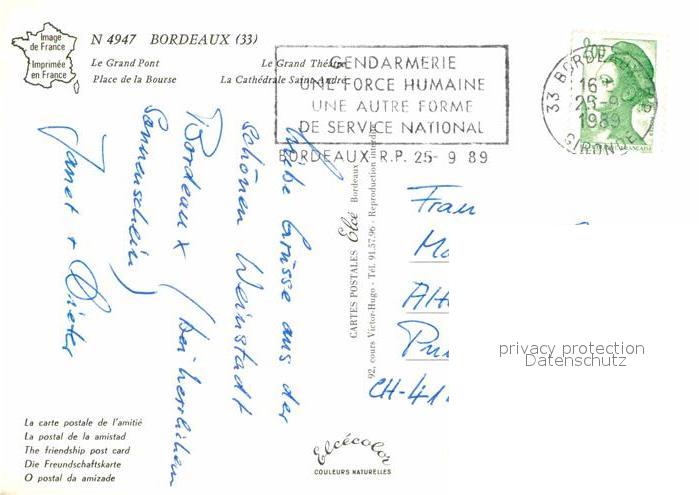 Image
de France
Imprimée
en France
N 4947 BORDEAUX (33)
Le Grand Pont
Le Grand Théâtre
Place de la Bourse
La Cathédrale Saint-André
GENDARMERIE
UNE FORCE HUMAINE
UNE AUTRE FORME
DE SERVICE NATIONAL
BORDEAUX R.P. 25- 9 89
33 BORDEAUX
16
25-9
1989
GIRONDE
2,00
Liebe Grüsse aus der
schönen Weinstadt
Bordeaux (bei herrlichem
Sonnenschein)
Janet + Dieter
CARTES POSTALES Elcé Bordeaux
92, cours Victor-Hugo - Tél. 91.57.96 - Reproduction interdite
Frau
CH-41
privacy protection
Datenschutz
La carte postale de l'amitié
La postal de la amistad
The friendship post card
Die Freundschaftskarte
O postal da amizade
Elcécolor
COULEURS NATURELLES